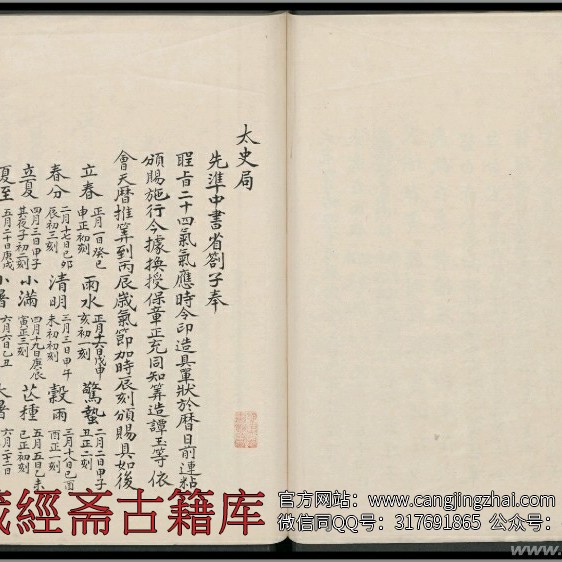 太史局
先準中書省劄子奉
聖旨二十四氣氣應時令印造具單狀於曆日前連粘
頒賜施行今據換授保章正充同知筭造譚玉等依
會天曆推筭到丙辰歲氣節加時辰刻頒賜具如後
立春 正月一日癸巳 申正初刻 雨水 正月十六日戊申 亥初一刻 驚蟄 二月二日甲子 丑正二刻
春分 二月十七日己卯 辰初三刻 清明 三月三日甲午 未初初刻 穀雨 三月十八日己酉 酉正一刻
立夏 四月三日甲子 其夜子初二刻 小滿 四月十九日庚辰 寅正三刻 芒種 五月五日乙未 巳正初刻
夏至 五月二十日庚戌 小暑 六月六日乙丑 大暑 六月二十二日
藏經斋古籍库
官方网站：www.cangjingzhai.com
微信同QQ号：317691865 公众号：
www.